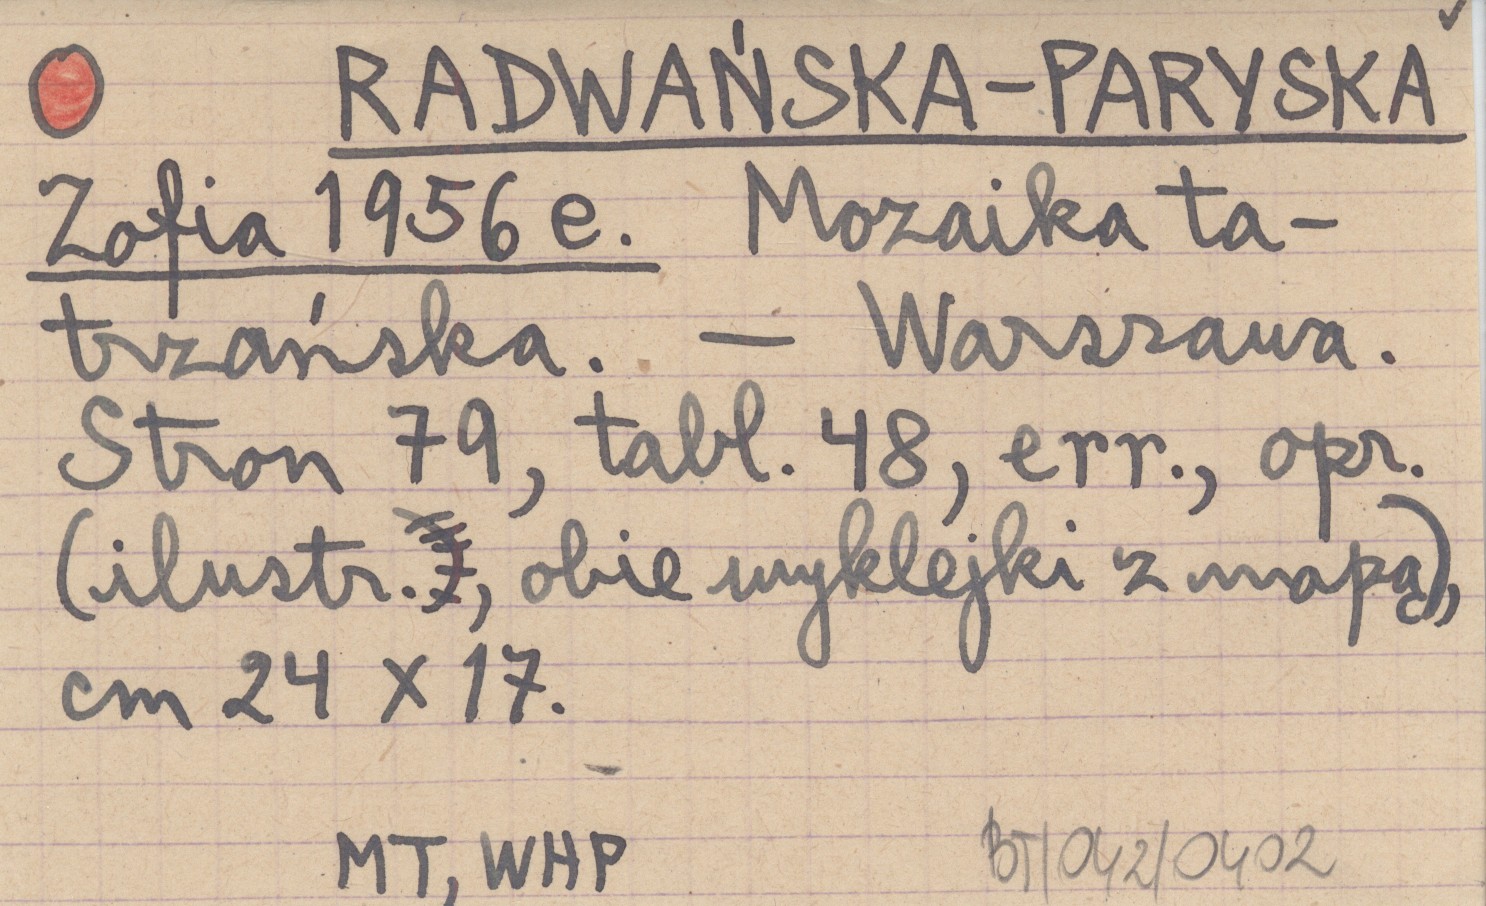 RADWAŃSKA-PARYSKA
Zofia 1956 e. Mozaika ta-
trzańska. — Warszawa.
Stron 79, tabl. 48, err., opr.
(ilustr., obie wyklejki z mapą),
cm 24 x 17.
MT, WHP
BT/042/0402